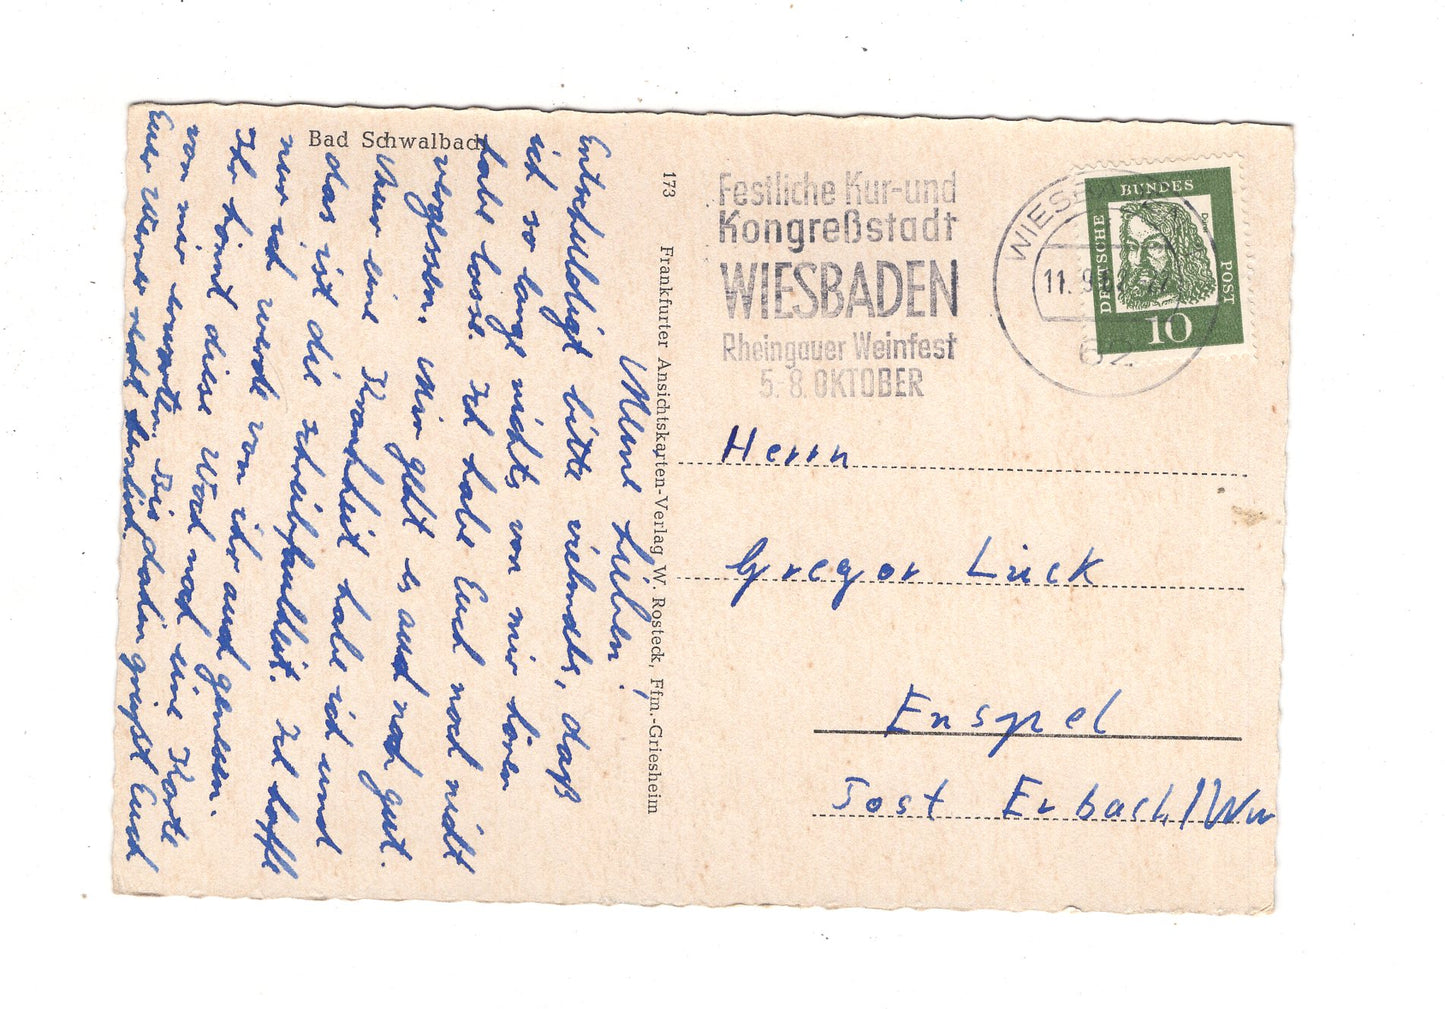 Bad Schwalbach
Meine Lieben!
Entschuldigt bitte vielmals, daß
ich so lange nichts von mir hören
habe lassen. Ich habe Euch noch nicht
vergessen. Mir geht es auch noch gut.
Aber eine Krankheit habe ich und
das ist die Schreibfaulheit. Ich hoffe
nur ich werde von ihr auch genesen.
Ihr könnt diese Woche noch eine Karte
von mir erwarten. Bis dahin grüßt Euch
Euer Werner recht herzlich.
173 Frankfurter Ansichtskarten-Verlag W. Rosteck, Ffm.-Griesheim
Festliche Kur-und
Kongreßstadt
WIESBADEN
Rheingauer Weinfest
5.-8. OKTOBER
WIESB
11.-9.
62
DEUTSCHE
BUNDES
POST
10
Herrn
Gregor Lück
Enspel
Post Erbach/Ww